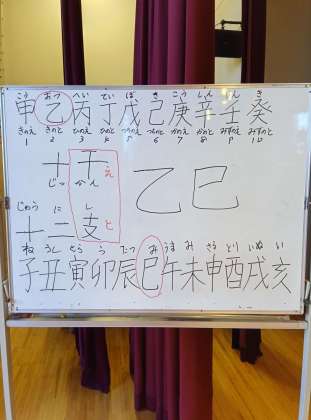 こう おつ へい てい ぼ き こう しん じん き
甲 乙 丙 丁 戊 己 庚 辛 壬 癸
きのえ きのと ひのえ ひのと つちのえ つちのと かのえ かのと みずのえ みずのと
1 2 3 4 5 6 7 8 9 10
十 干 え
じっ かん
乙巳
じゅう に し
十 二 支 と
ね うし とら う たつ み うま み さる とり いぬ い
子 丑 寅 卯 辰 巳 午 未 申 酉 戌 亥